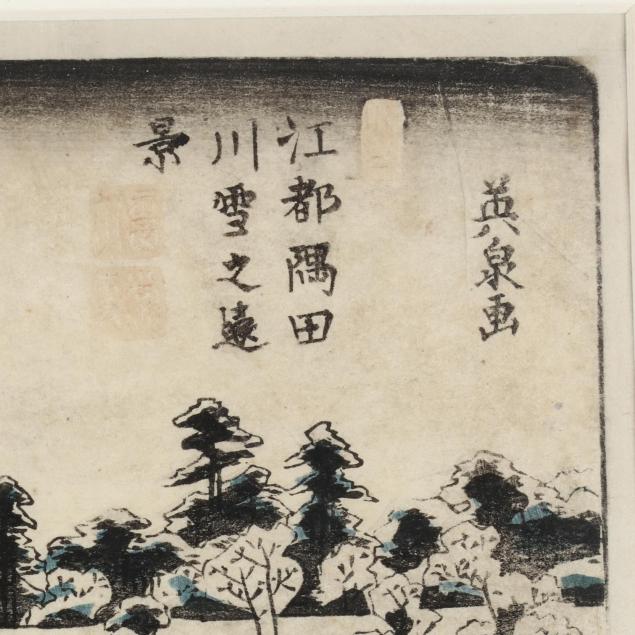 英泉画
江都隅田
川雪之遠
景